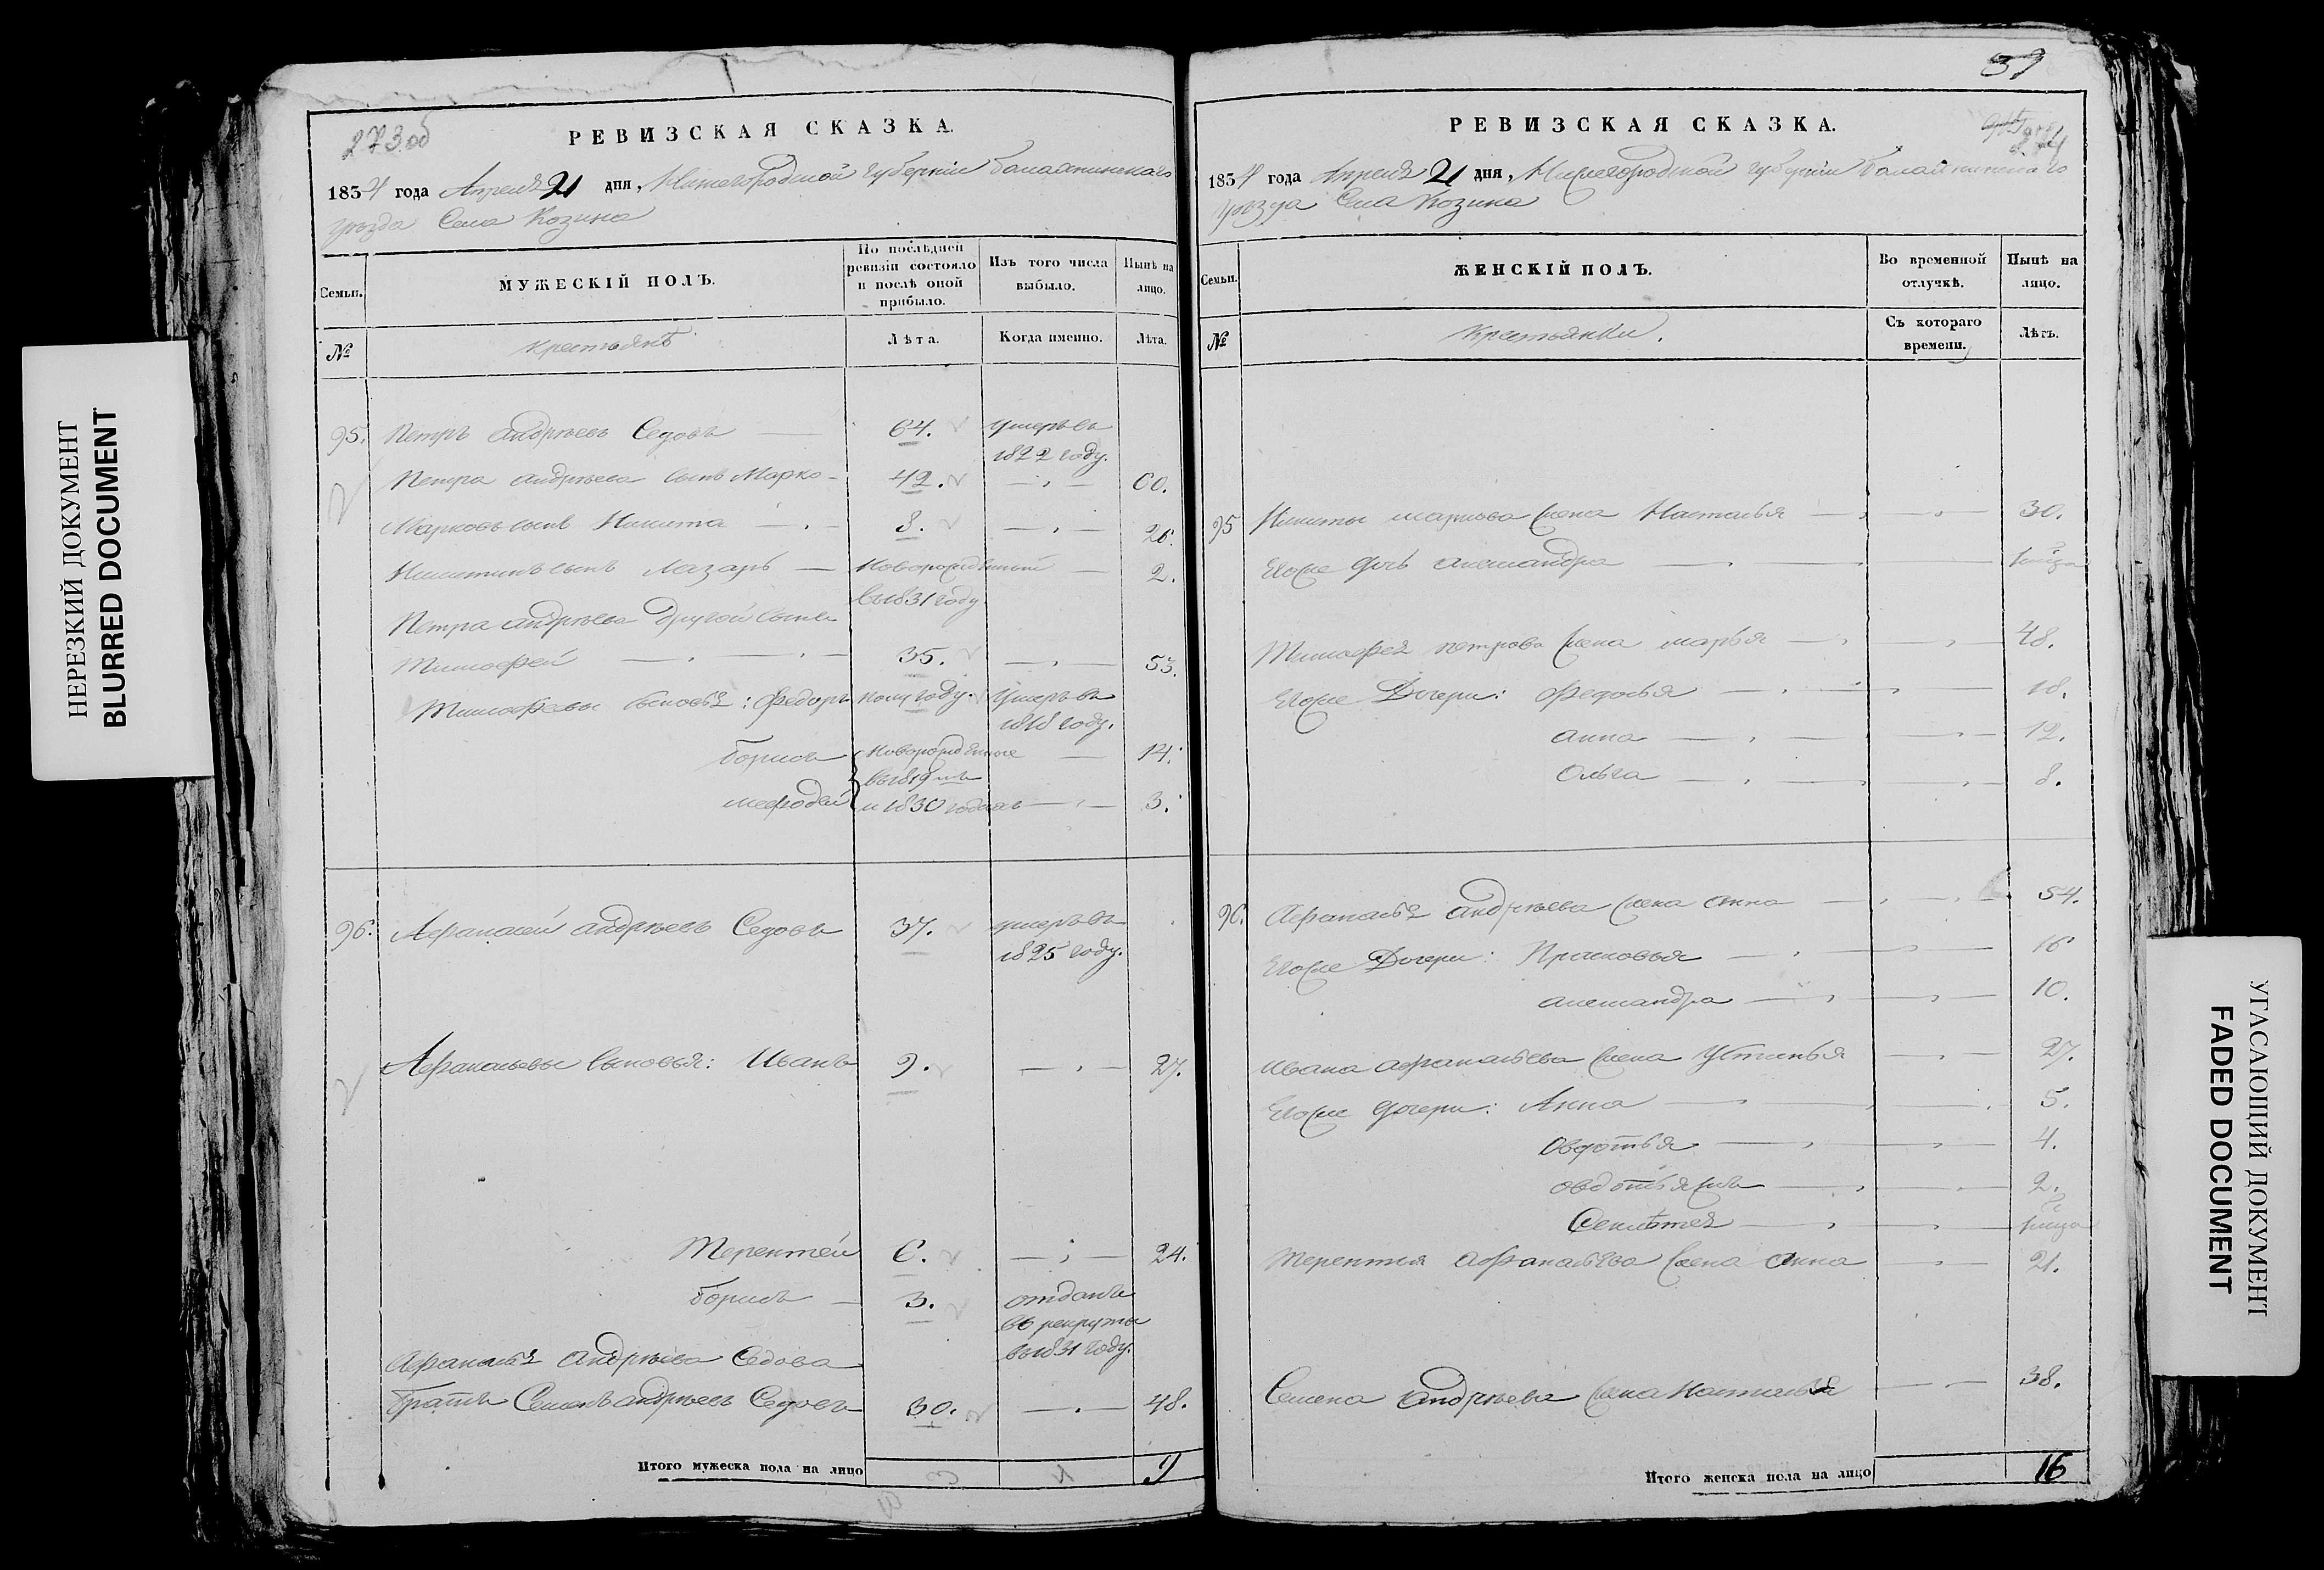 НЕРЕЗКИЙ ДОКУМЕНТ
BLURRED DOCUMENT
273об
РЕВИЗСКАЯ СКАЗКА.
1834 года Апреля 21 дня, Нижегородской губернiи Балахнинскаго
уезда Села Козина
Семьи.
МУЖЕСКIЙ ПОЛЪ.
По послѣдней ревизiи состояло и послѣ оной прибыло.
Изъ того числа выбыло.
Нынѣ на лицо.
№
крестьянѣ
Лѣта.
Когда именно.
Лѣта.
95. Петръ андреевъ Седовъ 64. умеръ въ
1822 году.
Петра андреева сынъ Марко 42. 60.
Марковъ сынъ Никита 8. 26.
Никитинъ сынъ Лазарь Новорожденный 2.
въ 1831 году
Петра андреева другой сынъ
Тимофей 35. 53.
Тимофеевы сыновья: Федоръ полугоду. умеръ въ
1818 году.
борисъ новорожденные 14.
въ 1819 мъ
мефодей и 1830 годахъ 3.
96. Афанасей андреевъ Седовъ 37. умеръ въ
1825 году.
Афанасьевы сыновья: Иванъ 9. 27.
Терентей 6. 24.
борисъ 3. отданъ
въ рекруты
въ 1831 году.
Афанасья андреева Седова
братъ Семенъ андреевъ Седовъ 30. 48.
Итого мужеска пола на лицо 9
39
274
РЕВИЗСКАЯ СКАЗКА.
1834 года Апреля 21 дня, Нижегородской губернiи балахнинскаго
уезда Села Козина
Семьи.
ЖЕНСКIЙ ПОЛЪ.
Во временной отлучкѣ.
Нынѣ на лицо.
№
Крестьянки.
Съ котораго времени.
Лѣтъ.
95 Никиты маркова жена Наталья 30.
Егоже дочь александра
Тимофея петрова жена марья 48.
Егоже Дочери: федосья 18.
анна 12.
Ольга 8.
96. Афанасья андреева жена анна 54.
Егоже Дочери: Прасковья 16
александра 10.
Ивана афанасьева жена Устинья 27.
Егоже дочери: Анна 5.
Овдотья 4.
овдотья 2.
Терентия афанасьева жена анна 21.
Семена андреева жена наталья 38.
Итого женска пола на лицо 16
УГАСАЮЩИЙ ДОКУМЕНТ
FADED DOCUMENT